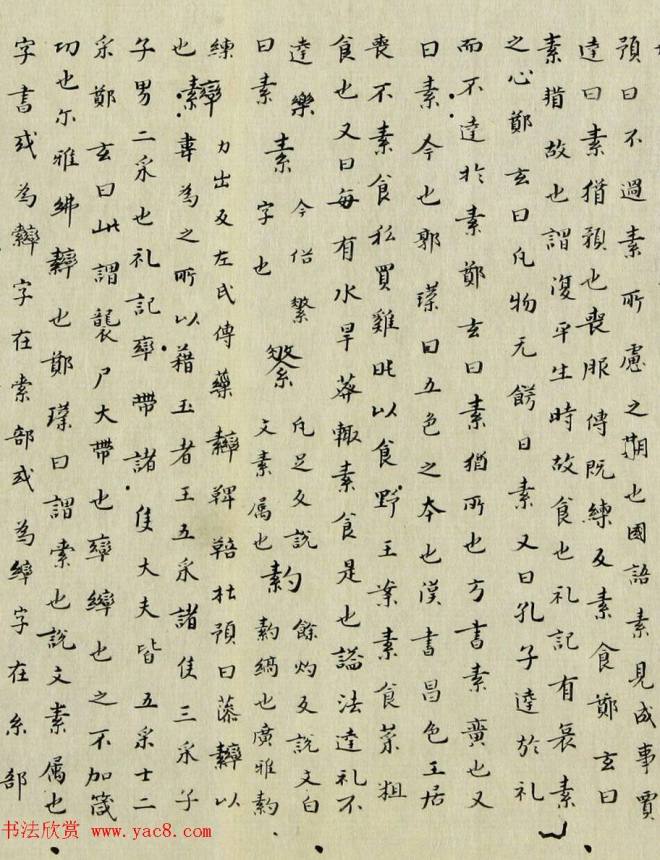 預曰不過素所慮之期也國語素見成事賈
逵曰素猶預也喪服傳既練反素食鄭玄曰
素猶故也謂復平生時故食也礼記有哀素
之心鄭玄曰凡物无餝曰素又曰孔子達於礼
而不達於素鄭玄曰素猶所也方書素廣也又
曰素今也郭璞曰五色之本也漢書昌色王居
喪不素食私買雞㹠以食野王案素食菜粗
食也又曰每有水旱莽輙素食是也謚法達礼不
達樂曰素 素 今俗繁字也 繁 凡足反說文素属也 䋤 餘灼反說文白䋤縞也廣雅䋤
練也 䋖 力出反左氏傳藻䋖鞞鞛杜預曰藻䋖以
韋為之所以藉玉者王五采諸侯三采子
子男二采也礼記䋖帶諸侯大夫皆五采士二
采鄭玄曰此謂襲尸大帶也䋖繂也之不加葴
功也尔雅紼䋖也鄭璞曰謂索也說文素属也
字書或為䋖字在索部或為繂字在糸部
书法欣赏 www.yac8.com